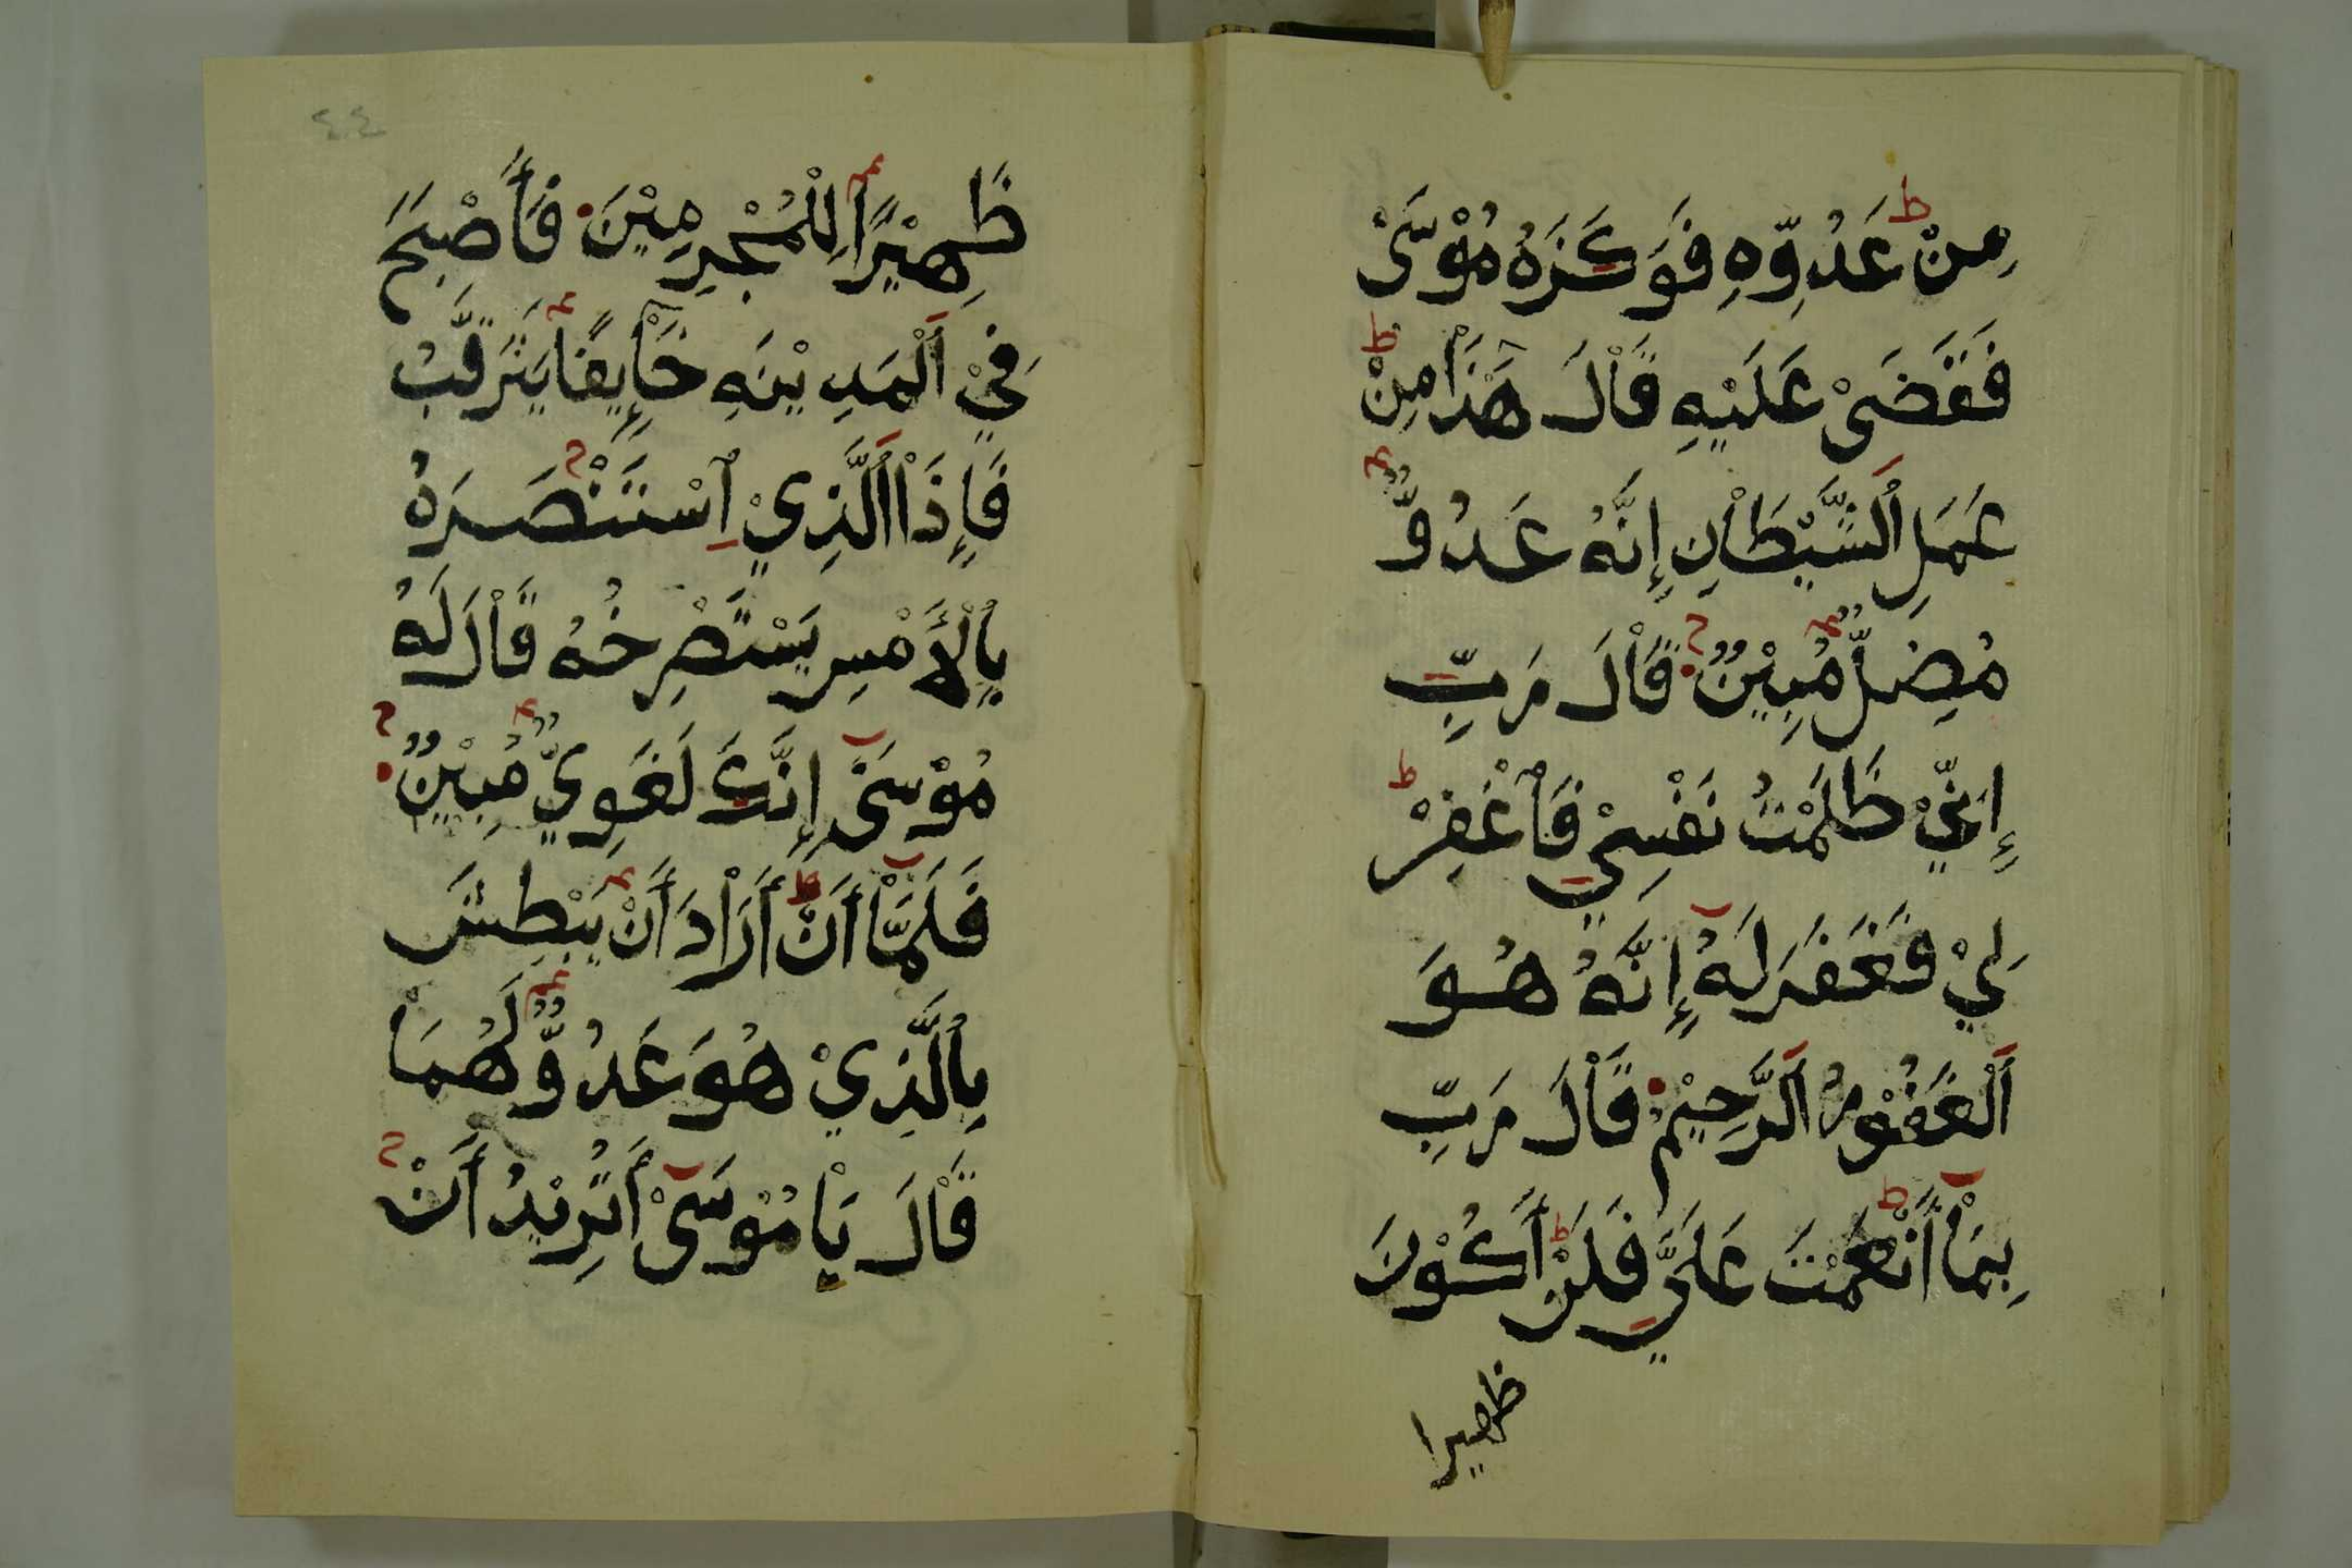 مِنْ عَدُوِّهِ فَوَكَزَهُ مُوْسَىْ
فَقَضَىْ عَلَيْهِ قَاْلَ هَٰذَاْ مِنْ
عَمَلِ اَلشَّيْطَاْنِ إِنَّهُ عَدُوٌّ
مُضِلٌّ مُبِيْنٌ قَاْلَ رَبِّ
إِنِّيْ ظَلَمْتُ نَفْسِيْ فَاْغْفِرْ
لِيْ فَغَفَرَ لَهُ إِنَّهُ هُوَ
اَلْغَفُوْرُ اَلرَّحِيْمُ قَاْلَ رَبِّ
بِمَاْ أَنْعَمْتَ عَلَيَّ فَلَنْ أَكُوْنَ
ظهيرا
٤٤
ظَهِيْرًا لِلْمُجْرِمِيْنَ فَأَصْبَحَ
فِيْ اَلْمَدِيْنَهِ خَاْئِفًا يَتَرَقَّبُ
فَإِذَاْ اَلَّذِيْ اِسْتَنْصَرَهُ
بِاْلأَمْسِ يَسْتَصْرِخُهُ قَاْلَ لَهُ
مُوْسَىْ إِنَّكَ لَغَوِيٌّ مُبِيْنٌ
فَلَمَّاْ أَنْ أَرَاْدَ أَنْ يَبْطِشَ
بِاْلَّذِيْ هُوَ عَدُوٌّ لَهُمَاْ
قَاْلَ يَاْ مُوْسَىْ أَتُرِيْدُ أَنْ